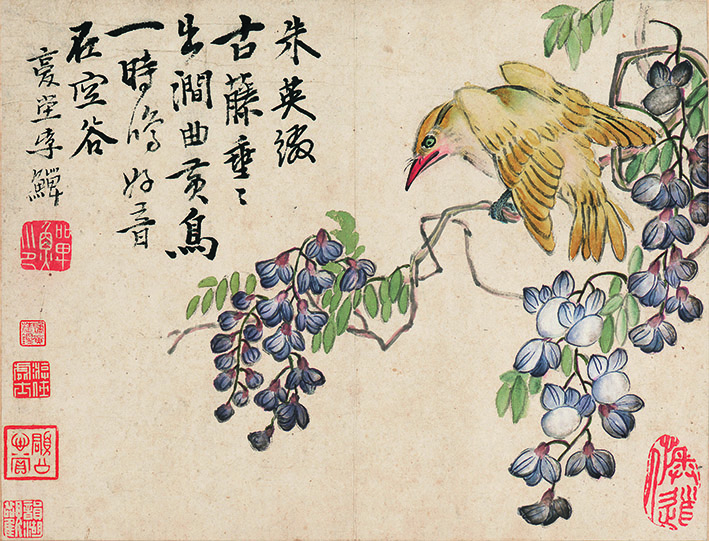 朱英綴
古藤垂〻
出澗曲黄鳥
一時鳴好音
在空谷
复堂李鱓